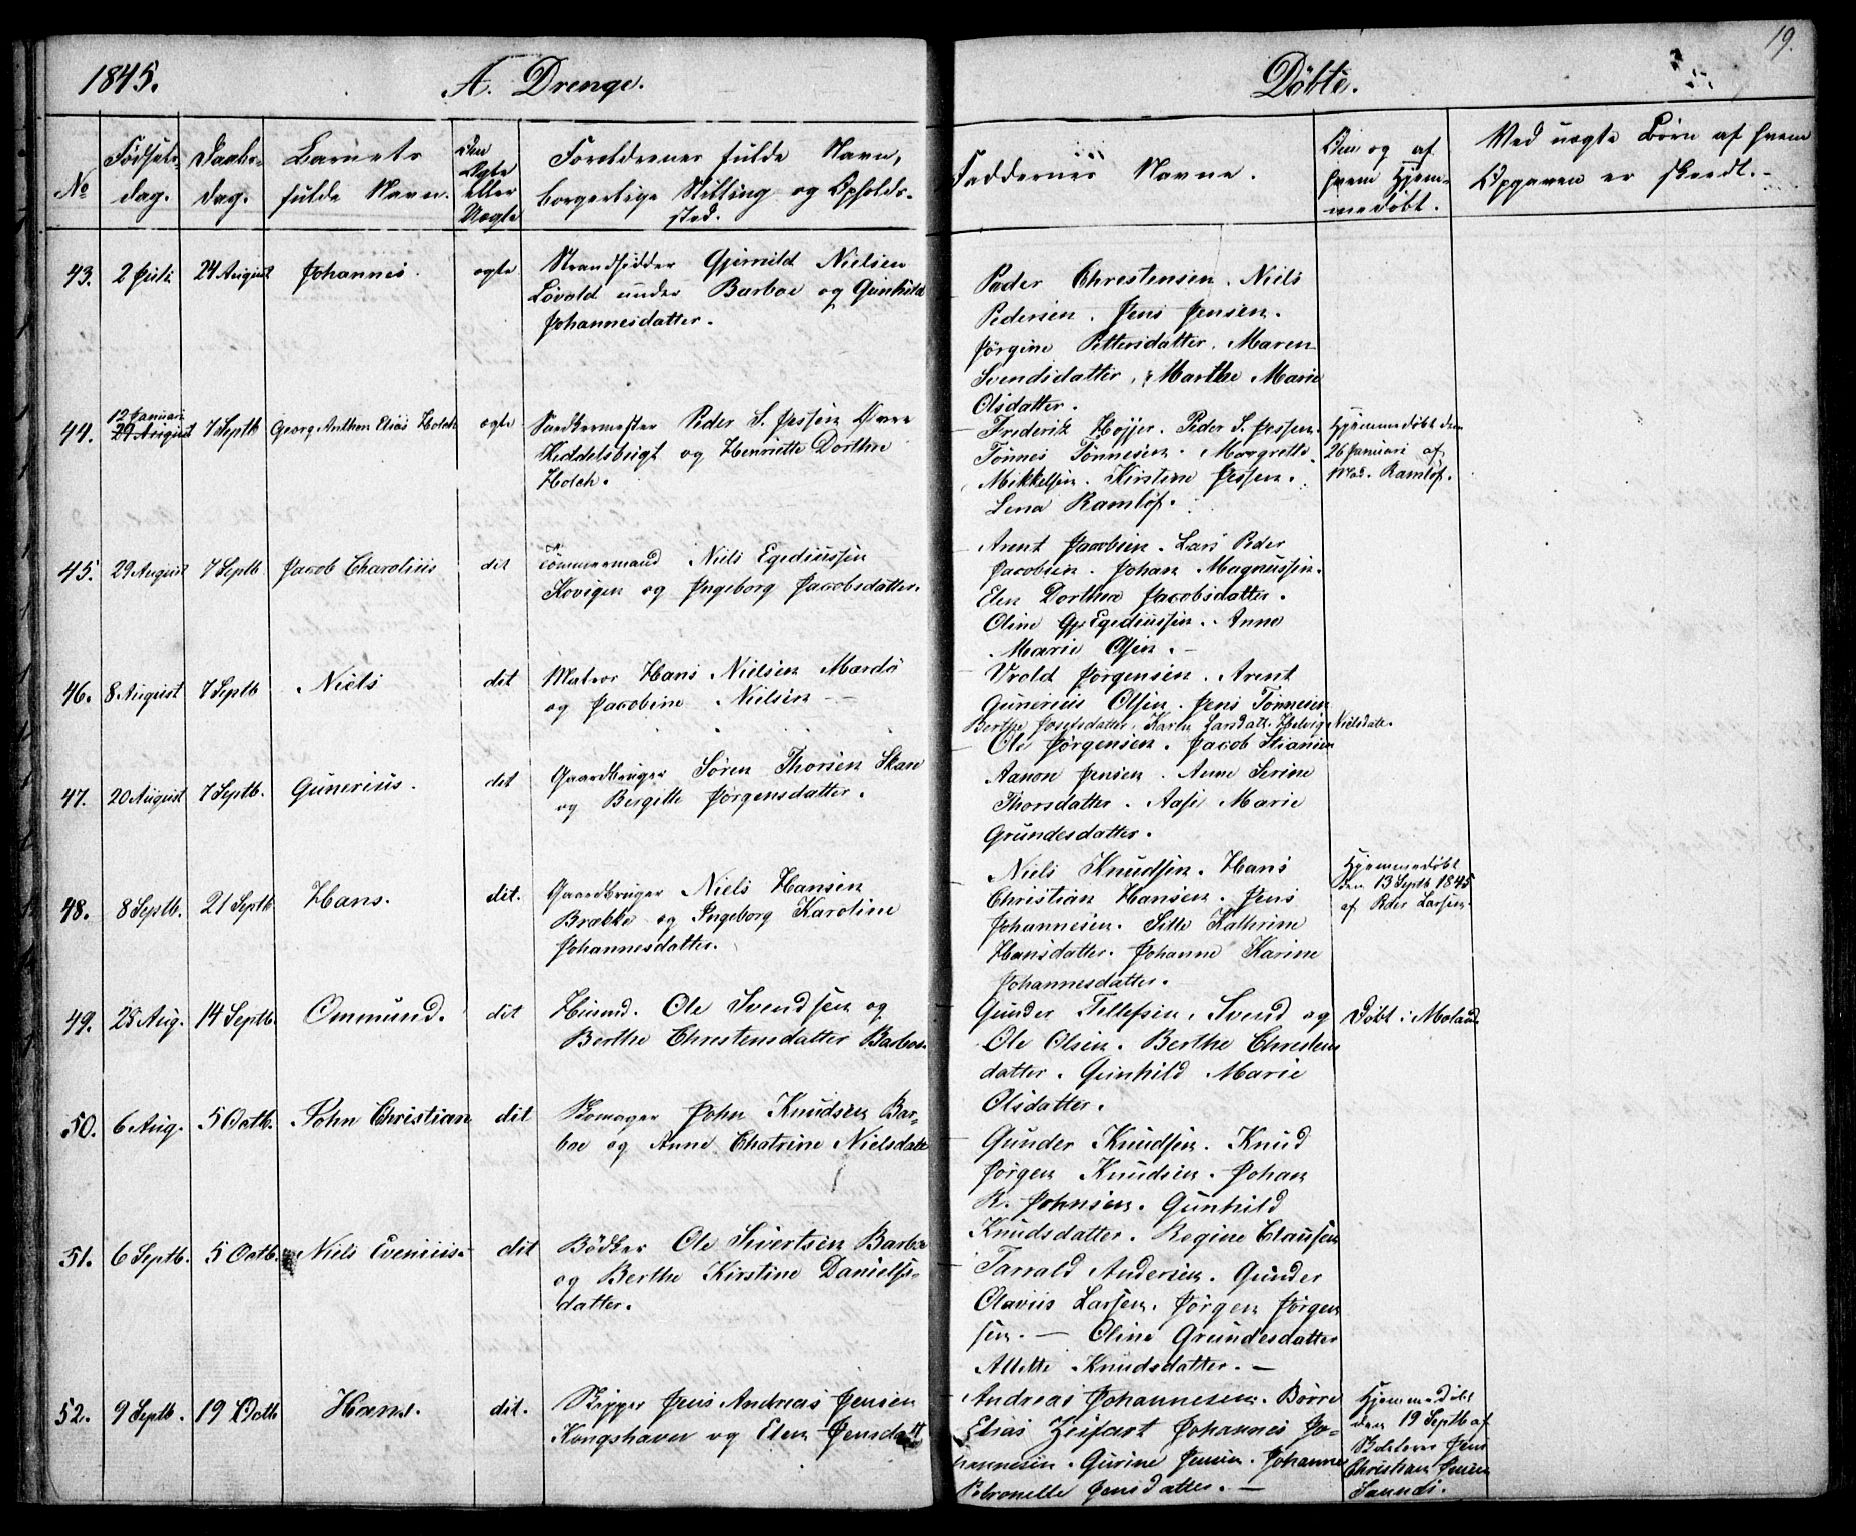 19.
1845. A. Drenge. Döbte.
No
Födsels-
dag.
Daabs-
dag.
Barnets
fulde Navn.
Om
Ægte
eller
Uægte
Foreldrenes fulde Navn,
borgerlige Stilling og Opholds-
sted.
Faddernes Navne.
Om og af
hvem Hjem-
medöbt.
Ved uægte Börn af hvem
Opgaven er skeedt.
43. 2 Juli 24 August Johannes. ægte
Strandsidder Gjeruld Nielsen
Lövold under Barboe og Gunhild
Johannesdatter.
Peder Christensen. Niels
Pedersen. Jens Jensen.
Jörgine Pettersdatter. Maren
Svendsdatter, Marthe Marie
Olsdatter.
44. 12 Januari
29 August 7 Septb Georg Anthon Elias Holch ægte
Peder S. Jessen
og Henriette Dorthea
Holch.
Frederik Höyer. Peder S. Jessen.
Tönnes Tönnesen. Margrethe
Mikkelsen. Kirstine Jessen.
Lena Ramlöf.
Hjemmedöbt den
26 Januari af
Mad. Ramlöf.
45. 29 August 7 Septb Jacob Charolius dit
Tömmermand Niels Egediussen
Kovigen og Ingeborg Jacobsdatter.
Arent Jacobsen. Lars Peder
Jacobsen. Johan Magnussen.
Elen Dorthea Jacobsdatter.
Oline Egediussen. Anne
Marie Olsen.
46. 8 August 7 Septb Niels dit
Matros Hans Nielsen Mardö
og Jacobine Nielsen
Vrold Jörgensen. Arent
Gunerius Olsen. Jens Tönnesen
Berthe Josefsdatter. Karen Larsdatt. Helvig Nielsdatt.
47. 20 August 7 Septb. Gunerius. det
Gaardbruger Sören Thorsen Skare
og Bergitte Jörgensdatter.
Ole Jörgensen. Jacob Stiansen
Aanon Jensen. Anne Serine
Thorsdatter. Aase Marie
Grundesdatter.
48. 8 Septb. 21 Septb Hans. dit.
Gaardbruger Niels Hansen
Brække og Ingeborg Karoline
Johannesdatter.
Niels Knudsen. Hans
Christian Hansen. Jens
Johannesen. Sille Kathrine
Hansdatter. Johanne Karine
Johannesdatter.
Hjemmedöbt
den 13 Septb 1845
af Peder Larsen.
49. 28 Aug. 14 Septb. Ommund. dit
Huusmd. Ole Svendsen og
Berthe Christensdatter Barboe.
Gunder Tellefsen, Svend og
Ole Olsen. Berthe Christens
datter. Gunhild Marie
Olsdatter.
Döbt i Moland
50. 6 Aug. 5 Octb. John Christian dit
Skomager John Knudsen Bar-
boe og Anne Chatrine Nielsdatt
Gunder Knudsen. Knud
Jörgen Knudsen. Johan
K. Johnsen. Gunhild
Knudsdatter. Regine Clausen
51. 6 Septb. 5 Octb. Niels Evenius dit
Bödker Ole Sivertsen Barboe
og Berthe Kirstine Daniels-
datter.
Tarrald Andersen. Gunder
Olavus Larsen. Jörgen Jörgen
sen. — Oline Grundesdatter
Allette Knudsdatter. —
52. 9 Septb. 19 Octb Hans. dit.
Skipper Jens Andreas Jensen
Kongshavn og Elen Jensdatt
Andreas Johannesen. Börre
Elias Zeifart Johannes Jo-
hannesen. Gurine Jensen. Johanne
Petronelle Jensdatter. —
Hjemmedöbt
den 19 Septb af
Skolelærer Jens
Christian Jensen